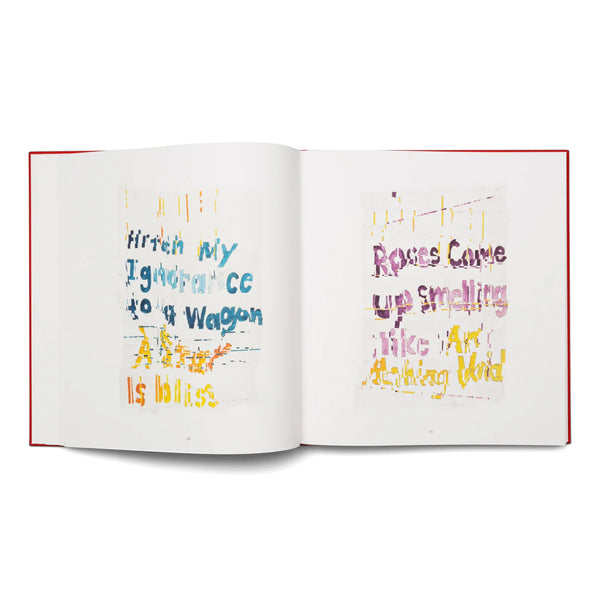 Hitch My
Ignorance
to a Wagon
A Star
Is bliss
Roses Come
up smelling
like An
Nothing Void